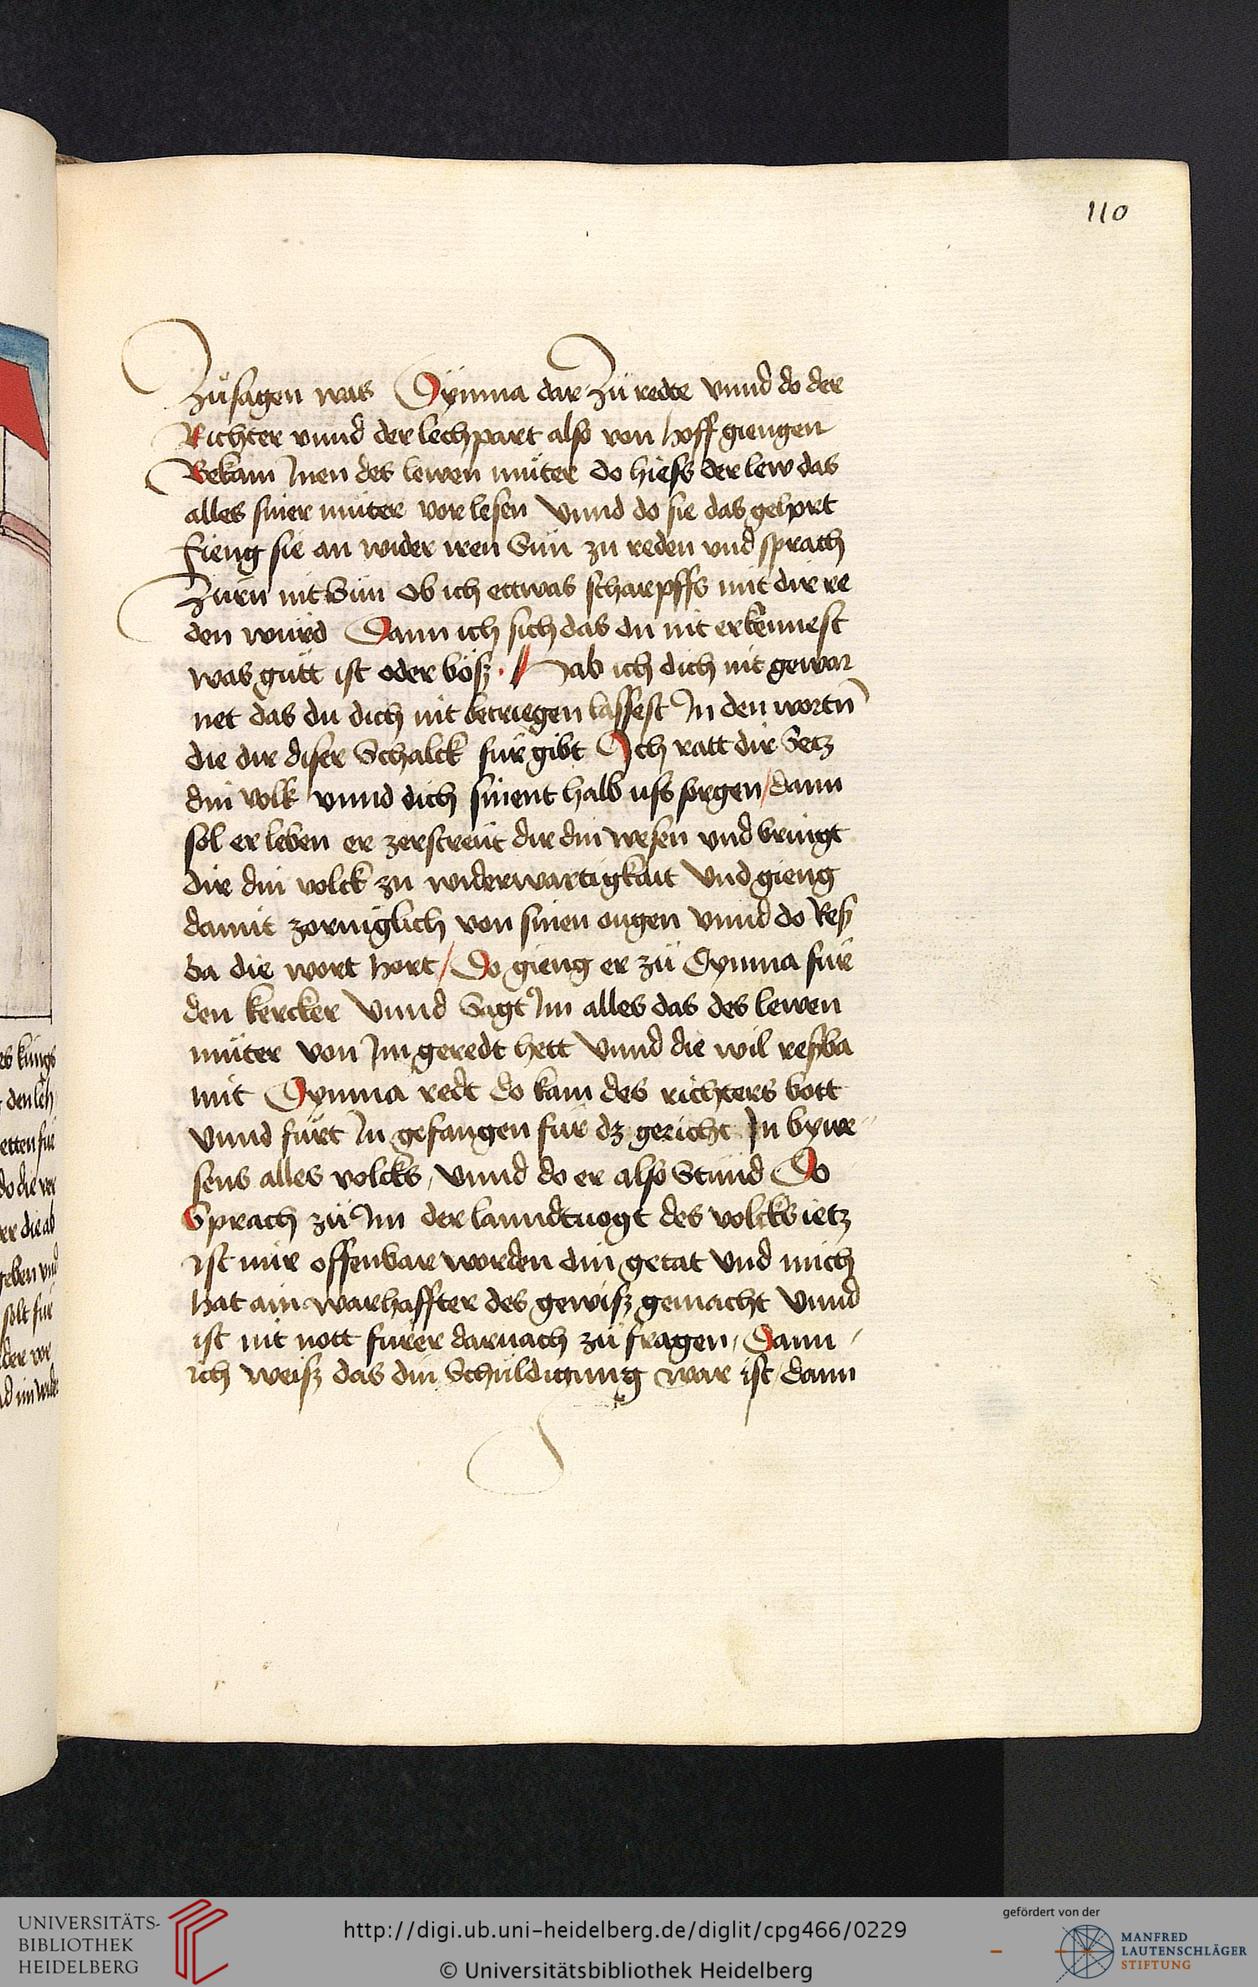 110
Zuͦsagen was Dymna dar Zuͦ redte vnnd do der
Richter vnnd der lechpart also von hoff giengen
Bekam Jnen des lewen muͦter do hiess der lew das
alles siner muͦter vor lesen Vnnd do sie das gehort
Fieng sie an wider iren Sun zu reden vnd sprach
Zurn nit Sun ob ich ettwas scharpffs mit dir re
den wurd Dann ich sich das du nit erkennest
was guͦtt ist oder boͤsz · Hab ich dich nit gewar
net das du dich nit betriegen lassest Jn den wortn̄
die dir diser Schalck fuͤr gibt Ich ratt dir Setz
din volk vnnd dich sinent halb uss sorgen / dann
sol er leben er zerstreut dir din wesen vnd bringt
dir din volck zu widerwartigkait Vnd gieng
damit zorniglich von sinen ougen Vnnd do Res
ba die wort hort / Do gieng er zuͦ Dymna fuͤr
den kercker Vnnd Sagt Jm alles das des lewen
muͦter von Jm geredt hett Vnnd die wil resba
mit Dymna redt do kam des richters bott
Vnnd fuͦrt Jn gefangen fuͤr dz gericht Jn bywe-
sens alles volcks / Vnnd do er also Stuͦnd Do
Sprach zuͦ Jm der lanndtuogt des volcks ietz
ist mir offenbar worden din getat Vnd mich
hat ain warhaffter des gewisz gemacht Vnnd
ist nit nott furer darnach zuͦ fragen / Dann /
ich weisz das din Schuldigung war ist / dann
es kungs
den leh
etten fur
do die ver
er die ab
geben vnd
solt fur
der vor
http://digi.ub.uni-heidelberg.de/diglit/cpg466/0229
© Universitätsbibliothek Heidelberg
UNIVERSITÄTS-
BIBLIOTHEK
HEIDELBERG
gefördert von der
MANFRED
LAUTENSCHLÄGER
STIFTUNG